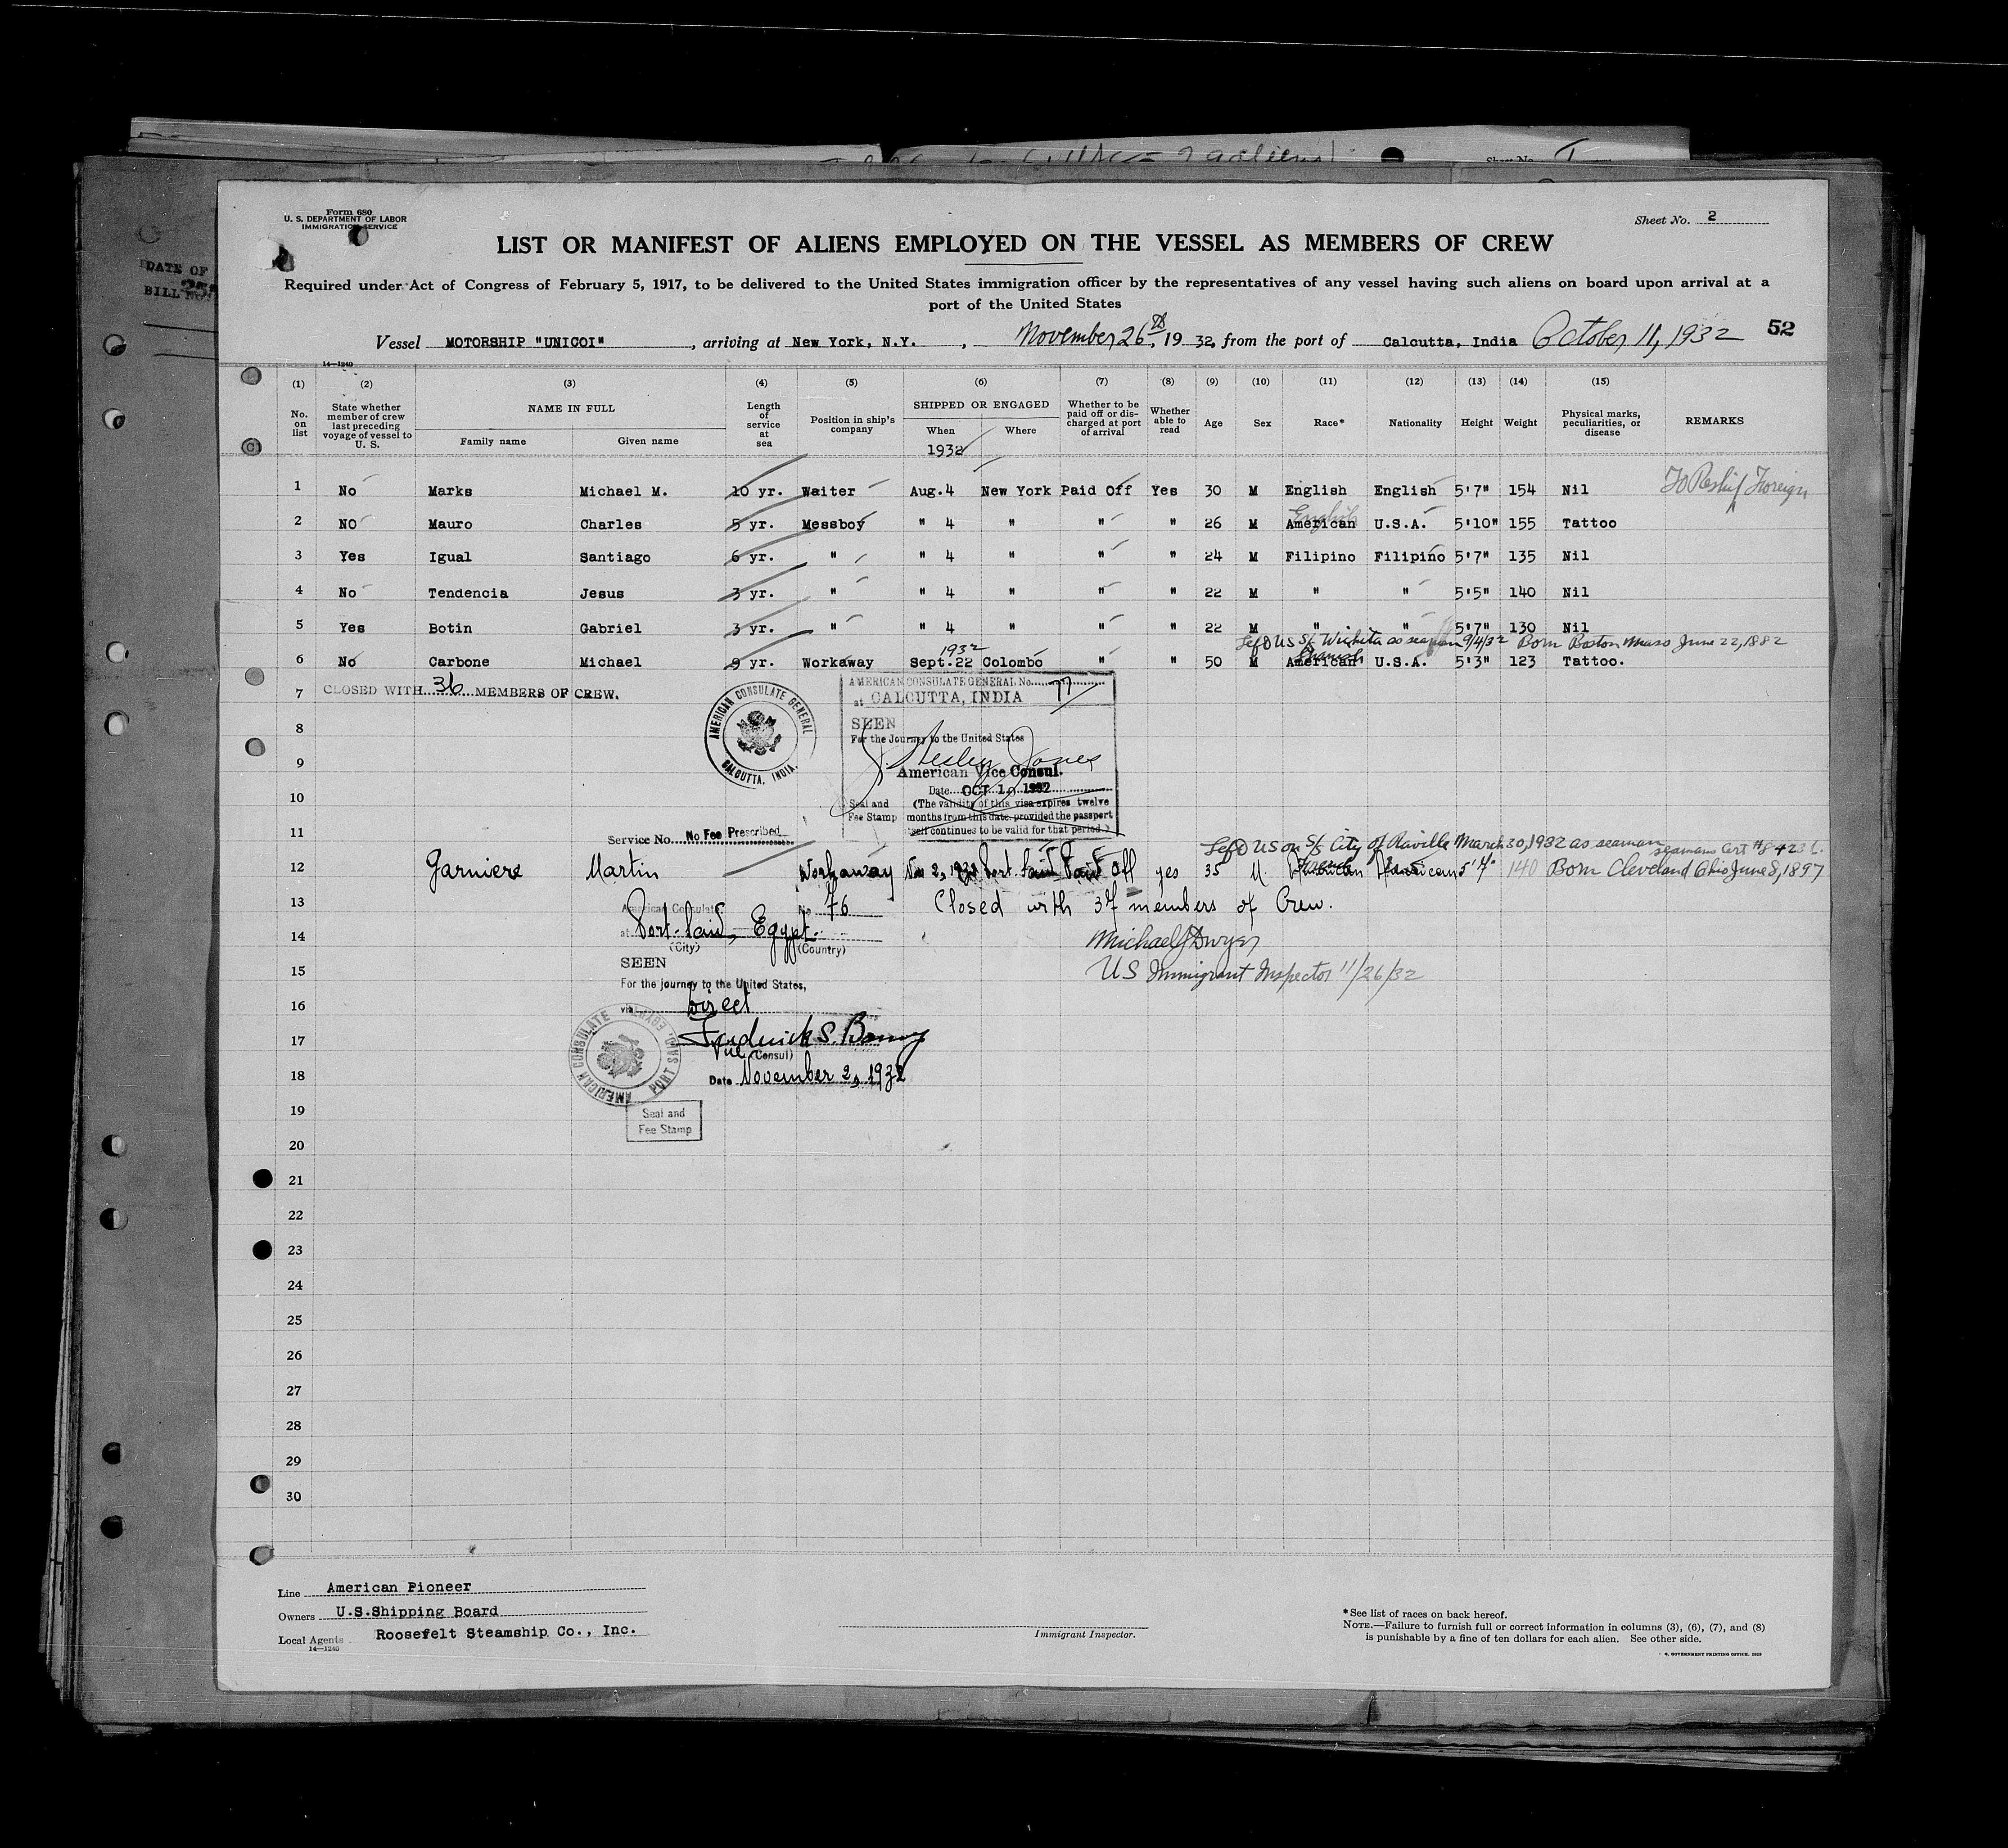 Form 680
U. S. DEPARTMENT OF LABOR
IMMIGRATION SERVICE
Sheet No. 2
LIST OR MANIFEST OF ALIENS EMPLOYED ON THE VESSEL AS MEMBERS OF CREW
Required under Act of Congress of February 5, 1917, to be delivered to the United States immigration officer by the representatives of any vessel having such aliens on board upon arrival at a
port of the United States
Vessel MOTORSHIP "UNICOI", arriving at New York, N.Y., November 26th, 1932, from the port of Calcutta, India October 11, 1932 52
DATE OF
BILL
14—1240
(1) (2) (3) (4) (5) (6) (7) (8) (9) (10) (11) (12) (13) (14) (15)
No. on list
State whether member of crew last preceding voyage of vessel to U. S.
NAME IN FULL
Family name
Given name
Length of service at sea
Position in ship's company
SHIPPED OR ENGAGED
When
1932
Where
Whether to be paid off or discharged at port of arrival
Whether able to read
Age
Sex
Race*
Nationality
Height
Weight
Physical marks, peculiarities, or disease
REMARKS
1 No Marks Michael M. 10 yr. Waiter Aug.4 New York Paid Off Yes 30 M English English 5'7" 154 Nil To Reship Foreign
English
2 NO Mauro Charles 5 yr. Messboy " 4 " " " 26 M American U.S.A. 5'10" 155 Tattoo
3 Yes Igual Santiago 6 yr. " " 4 " " " 24 M Filipino Filipino 5'7" 135 Nil
4 No Tendencia Jesus 3 yr. " " 4 " " " 22 M " " 5'5" 140 Nil
5 Yes Botin Gabriel 3 yr. " " 4 " " " 22 M " " 5'7" 130 Nil
Left US S/S Wichita as seaman 9/4/32 Born Boston Mass June 22, 1882
1932 Spanish
6 No Carbone Michael 9 yr. Workaway Sept.22 Colombo " " 50 M American U.S.A. 5'3" 123 Tattoo.
7 CLOSED WITH 36 MEMBERS OF CREW.
AMERICAN CONSULATE GENERAL No. 77
at CALCUTTA, INDIA
AMERICAN CONSULATE GENERAL
CALCUTTA, INDIA.
SEEN
8
For the Journey to the United States
9
Wesley Jones
American Vice Consul.
Date OCT 1 1932
10
Seal and Fee Stamp
(The validity of this visa expires twelve
months from this date provided the passport
itself continues to be valid for that period.)
11
Service No. No Fee Prescribed
Left US on S/S City of Rayville March 30, 1932 as seaman
seamans Cert
12 Garniere Martin Workaway Nov 2, 1932 Port Said Paid Off yes 35 M. American American 5'4" 140 Born Cleveland Ohio June 8, 1897
French
13
American Consulate No. 76
Closed with 37 members of Crew.
at Port-Said, Egypt.
(City) (Country)
14
Michael J Dwyer
SEEN
15
US Immigrant Inspector 11/26/32
For the journey to the United States,
16
via Direct
AMERICAN CONSULATE
PORT SAID, EGYPT
17
Frederick S. Barny
Vice (Consul)
18
Date November 2, 1932
19
Seal and
Fee Stamp
20
21
22
23
24
25
26
27
28
29
30
Line American Pioneer
Owners U.S.Shipping Board
Local Agents Roosefelt Steamship Co., Inc.
14—1240
Immigrant Inspector.
*See list of races on back hereof.
NOTE.—Failure to furnish full or correct information in columns (3), (6), (7), and (8)
is punishable by a fine of ten dollars for each alien. See other side.
GOVERNMENT PRINTING OFFICE